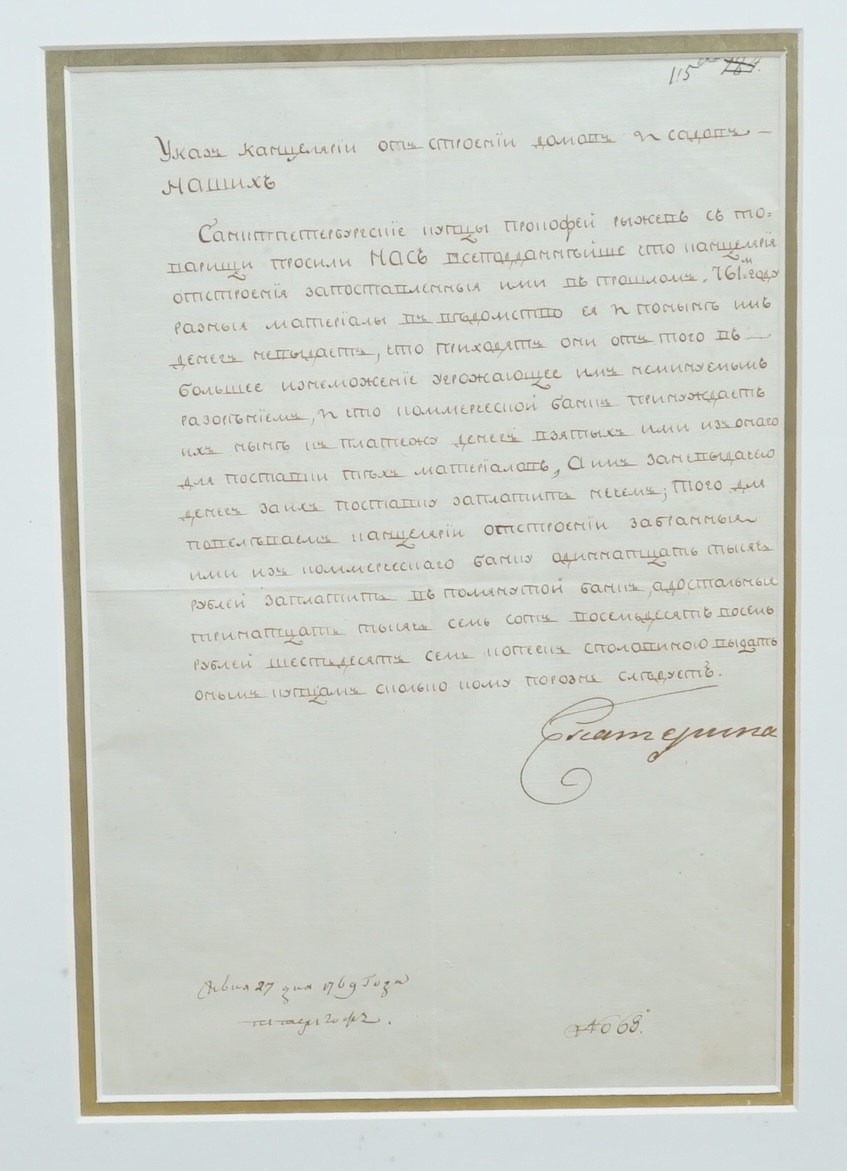 115 784.
Указъ канцеляріи отъ строеніи домовъ и садовъ
НАШИХЪ
Санктпетербурскіе купцы прокофей рыжевъ съ то=
варищи просили НАСЪ всеподданнѣйше что канцелярія
отстроенія запоставленныя ими въ прошломъ 761=м году
разныя матеріалы въ вѣдомство ея и понынѣ имъ
денегъ невыдаетъ, что приходятъ они отъ того въ
большее изнеможеніе угрожающее имъ неминуемымъ
разореніемъ, и что коммерческой банкъ принуждаетъ
ихъ нынѣ къ платежу денегъ взятыхъ ими изъ онаго
для поставки тѣхъ матеріаловъ, А имъ заневыдачею
денегъ заихъ поставку заплатить нечемъ; Того для
повелѣваемъ канцеляріи отстроеніи забранныя
ими изъ коммерческаго банку одиннатцать тысячь
рублей заплатить въ помянутой банкъ, адостальные
тринатцать тысячь семь сотъ восемьдесятъ восемь
рублей шестьдесятъ семь копеекъ сполавиною выдать
онымъ купцамъ сколько кому порознь слѣдуетъ.
Екатерина
27 дня 1769 Года
№ 68.